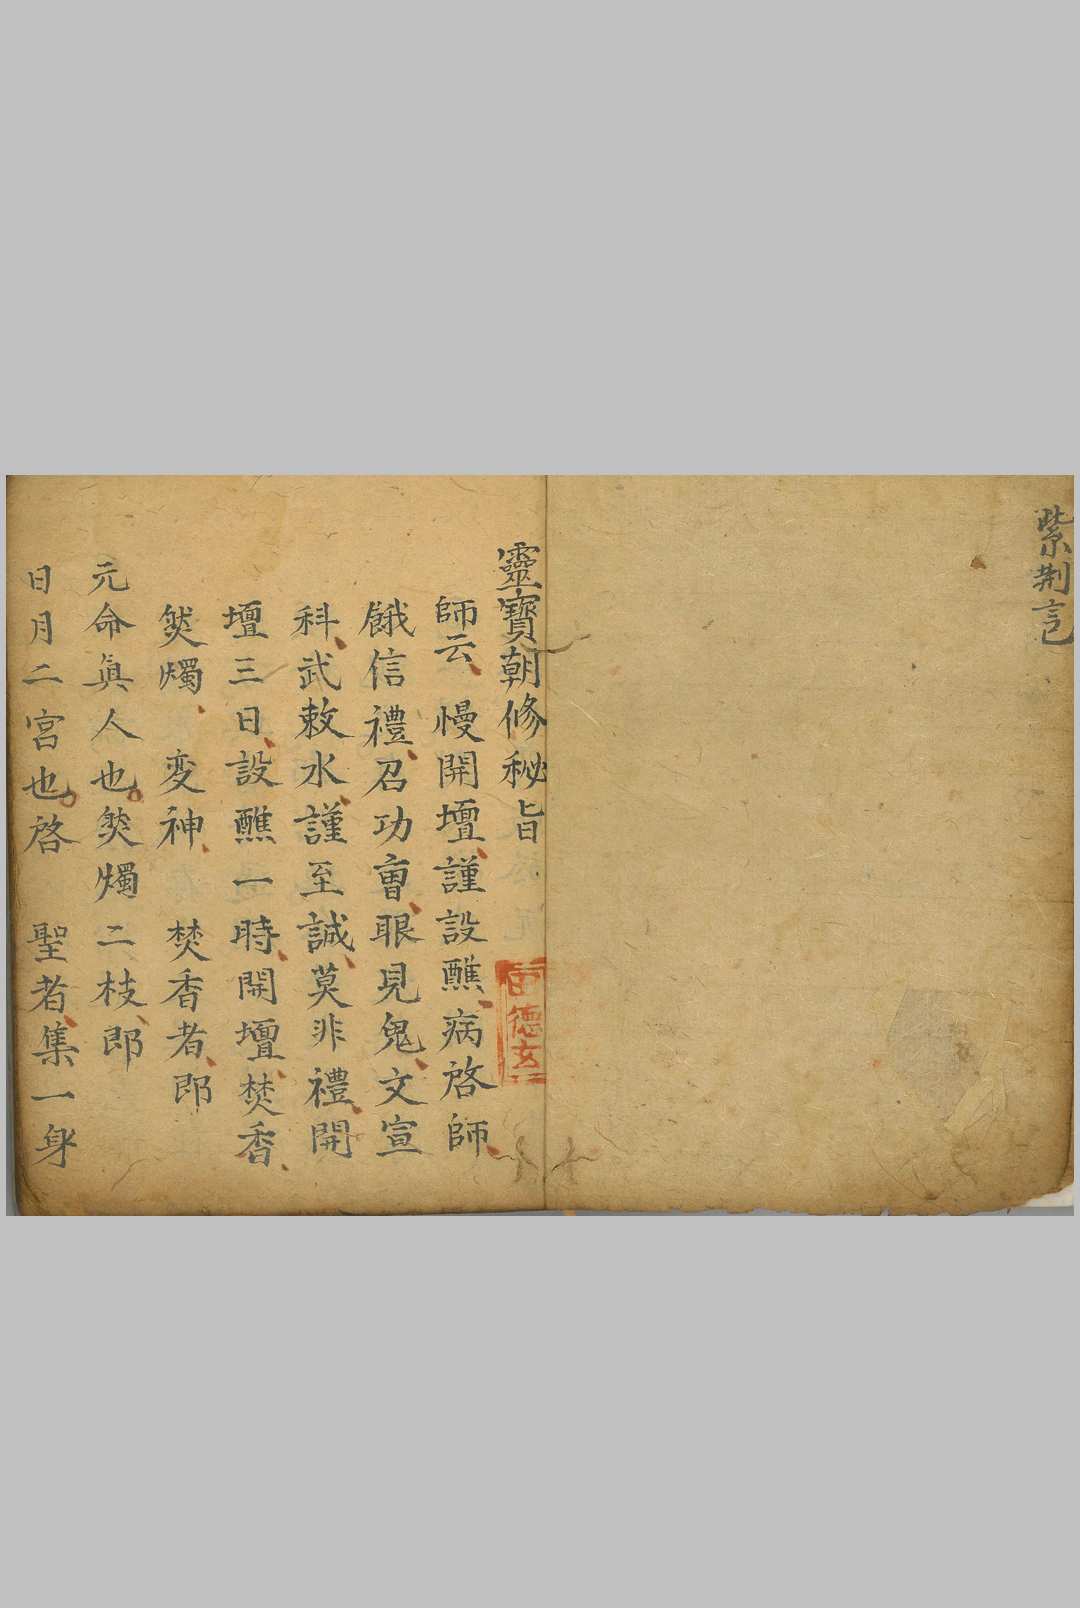 紫荆言
靈寶朝修秘旨
師云慢開壇謹設醮病啓師
餓信禮召功曹眼見鬼文宣
科武敕水謹至誠莫非禮開
壇三日設醮一時開壇焚香
燃燭変神焚香者郎
元命眞人也燃燭二枝郎
日月二宮也啓聖者集一身
德玄